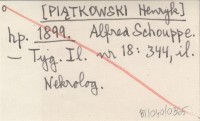 [PIĄTKOWSKI Henryk]
hp. 1899. Alfred Schouppe.
— Tyg. Il. nr 18: 344, il.
Nekrolog.